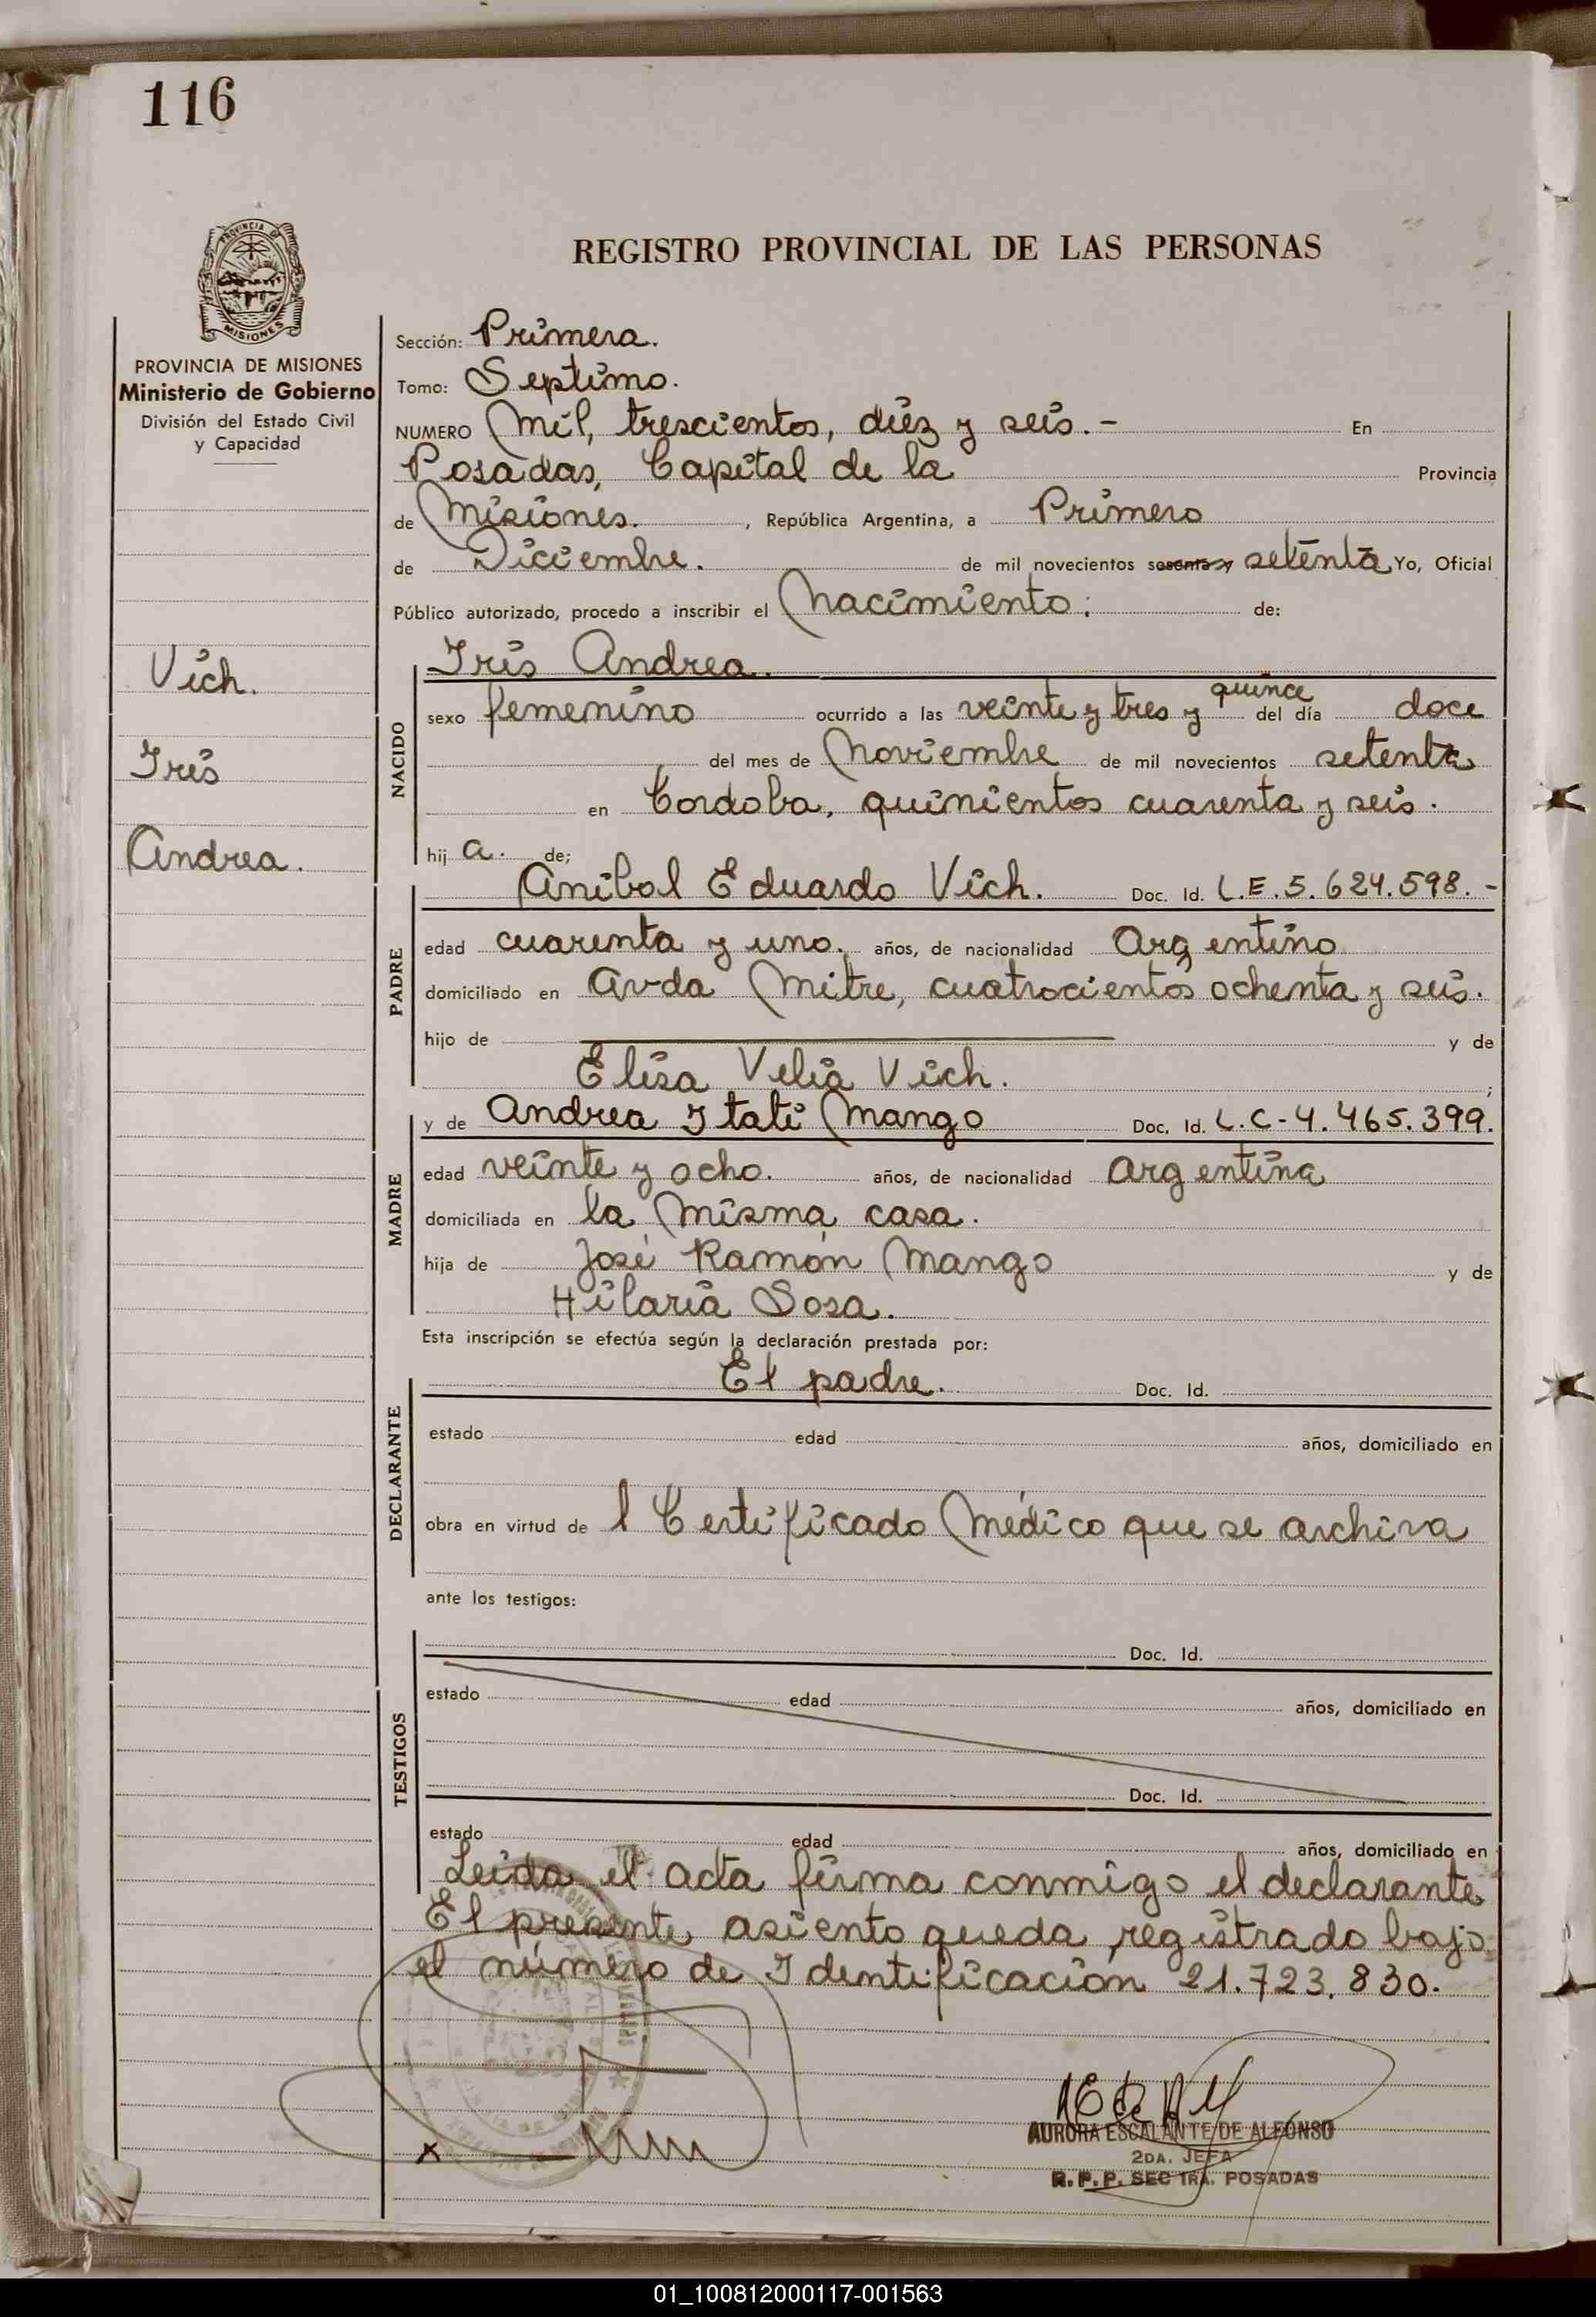 116
PROVINCIA DE
MISIONES
PROVINCIA DE MISIONES
Ministerio de Gobierno
División del Estado Civil
y Capacidad
Vich.
Iris
Andrea.
REGISTRO PROVINCIAL DE LAS PERSONAS
Sección: Primera.
Tomo: Septimo.
NUMERO Mil, trescientos, diez y seis.- En
Posadas, Capital de la Provincia
de Misiones. , República Argentina, a Primero
de Diciembre. de mil novecientos sesenta y setenta Yo, Oficial
Público autorizado, procedo a inscribir el Nacimiento: de:
Iris Andrea.
NACIDO
sexo femenino ocurrido a las veinte y tres y quince del día doce
del mes de Noviembre de mil novecientos setenta
en Cordoba, quinientos cuarenta y seis.
hij a. de;
PADRE
Anibal Eduardo Vich. Doc. Id. L.E.5.624.598.-
edad cuarenta y uno. años, de nacionalidad Argentino
domiciliado en Avda Mitre, cuatrocientos ochenta y seis.
hijo de y de
Elisa Velia Vich. ;
MADRE
y de Andrea Itati Mango Doc. Id. L.C-4.465.399.
edad veinte y ocho. años, de nacionalidad Argentina
domiciliada en la misma casa.
hija de José Ramón Mango y de
Hilaria Sosa.
Esta inscripción se efectúa según la declaración prestada por:
DECLARANTE
El padre. Doc. Id.
estado edad años, domiciliado en
obra en virtud de l Certificado Médico que se archiva
ante los testigos:
TESTIGOS
Doc. Id.
estado edad años, domiciliado en
Doc. Id.
estado edad años, domiciliado en
Leida el acta firma conmigo el declarante
El presente asiento queda registrado bajo
el número de Identificación 21.723.830.
x
AURORA ESCALANTE DE ALFONSO
2DA. JEFA
R.P.P. SEC 1RA. POSADAS
01_100812000117-001563